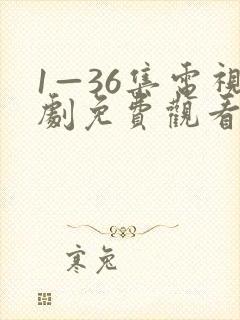 1—36集電視
劇免費觀看
寒兔